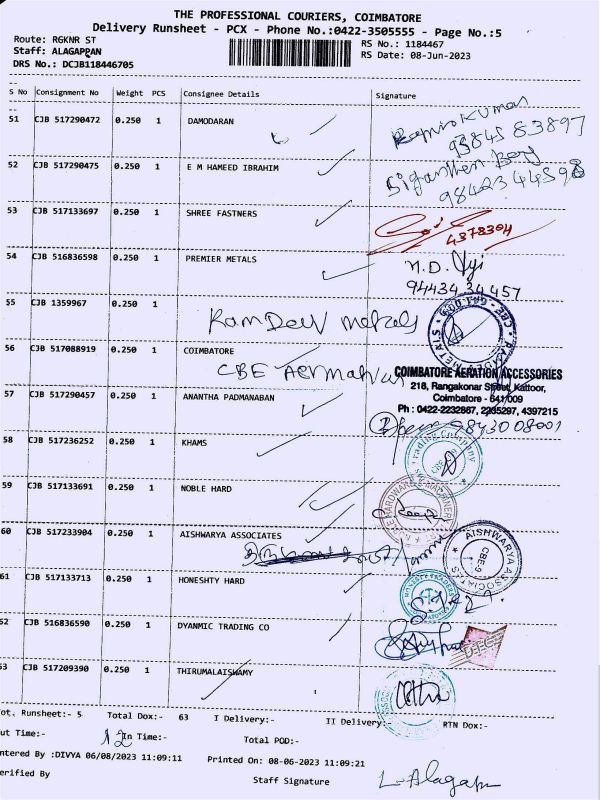 THE PROFESSIONAL COURIERS, COIMBATORE
Delivery Runsheet - PCX - Phone No.:0422-3505555 - Page No.:5
Route: RGKNR ST
Staff: ALAGAPPAN
DRS No.: DCJB118446705
RS No.: 1184467
RS Date: 08-Jun-2023
S No Consignment No Weight PCS Consignee Details Signature
51 CJB 517290472 0.250 1 DAMODARAN
93845 83897
52 CJB 517290475 0.250 1 E M HAMEED IBRAHIM
98423 44598
53 CJB 517133697 0.250 1 SHREE FASTNERS
4378304
54 CJB 516836598 0.250 1 PREMIER METALS
94434 34457
55 CJB 1359967 0.250 1 Ramdev metals
56 CJB 517088919 0.250 1 COIMBATORE
CBE
COIMBATORE AERATION ACCESSORIES
218, Rangakonar Street, Kattoor,
Coimbatore - 641 009
Ph : 0422-2232667, 2235297, 4397215
57 CJB 517290457 0.250 1 ANANTHA PADMANABAN
9843008001
58 CJB 517236252 0.250 1 KHAMS
Trading Company
59 CJB 517133691 0.250 1 NOBLE HARD
60 CJB 517233904 0.250 1 AISHWARYA ASSOCIATES
AISHWARYA ASSOCIATES
CBE-9
61 CJB 517133713 0.250 1 HONESHTY HARD
62 CJB 516836590 0.250 1 DYANMIC TRADING CO
DTC
63 CJB 517209390 0.250 1 THIRUMALAISWAMY
Tot. Runsheet:- 5 Total Dox:- 63 I Delivery:- II Delivery:- RTN Dox:-
Out Time:- 12 In Time:- Total POD:-
Entered By :DIVYA 06/08/2023 11:09:11 Printed On: 08-06-2023 11:09:21
Verified By Staff Signature L. Alagap